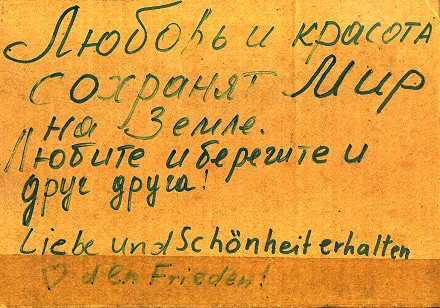 Любовь и красота
сохранят Мир
на Земле.
Любите и берегите и
друг друга!
Liebe und Schönheit erhalten
♡ den Frieden!